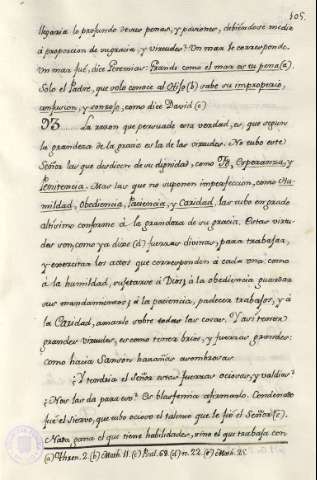 105.
llegaria lo profundo de sus penas, y passiones, debiendose medir
á proporcion de su gracia, y virtudes? Un mar le corresponde.
Un mar fué, dice Jeremias: Grande como el mar es tu pena (a).
Solo el Padre, que solo conoce al Hijo (b) sabe su improperio,
confusion, y sonrojo, como dice David (c)
93. La razon que persuade esta verdad, es, que segun
la grandeza de la gracia es la de las virtudes. No tubo este
Señor las que desdicen de su dignidad, como Fé, Esperanza, y
Penitencia. Mas las que no suponen imperfeccion, como Hu-
mildad, Obediencia, Paciencia, y Caridad, las tubo en grado
altísimo conforme á la grandeza de su gracia. Estas virtu-
des son, como ya dixe (d) fuerzas divinas, para trabajar,
y exercitar los actos que corresponden á cada una como
á la humildad, sujetarse á Dios; á la obediencia guardar
sus mandamientos; á la paciencia, padecer trabajos, y á
la Caridad, amarlo sobre todas las cosas. Y asi tener
grandes virtudes, es como tener brios, y fuerzas grandes:
como hacia Sanson hazañas asombrosas.
¿Y tendria el Señor estas fuerzas ociosas, y valdias?
¿Mas las da para eso? Es blasfemia afirmarlo. Condenado
fué el siervo, que tubo ocioso el talento que le fió el Señor (e).
Nada gana el que tiene habilidades, sino el que trabaja con
(a) Thren. 2. (b) Math. 11. (c) Psal. 68. (d) n. 22. (e) Math. 25.